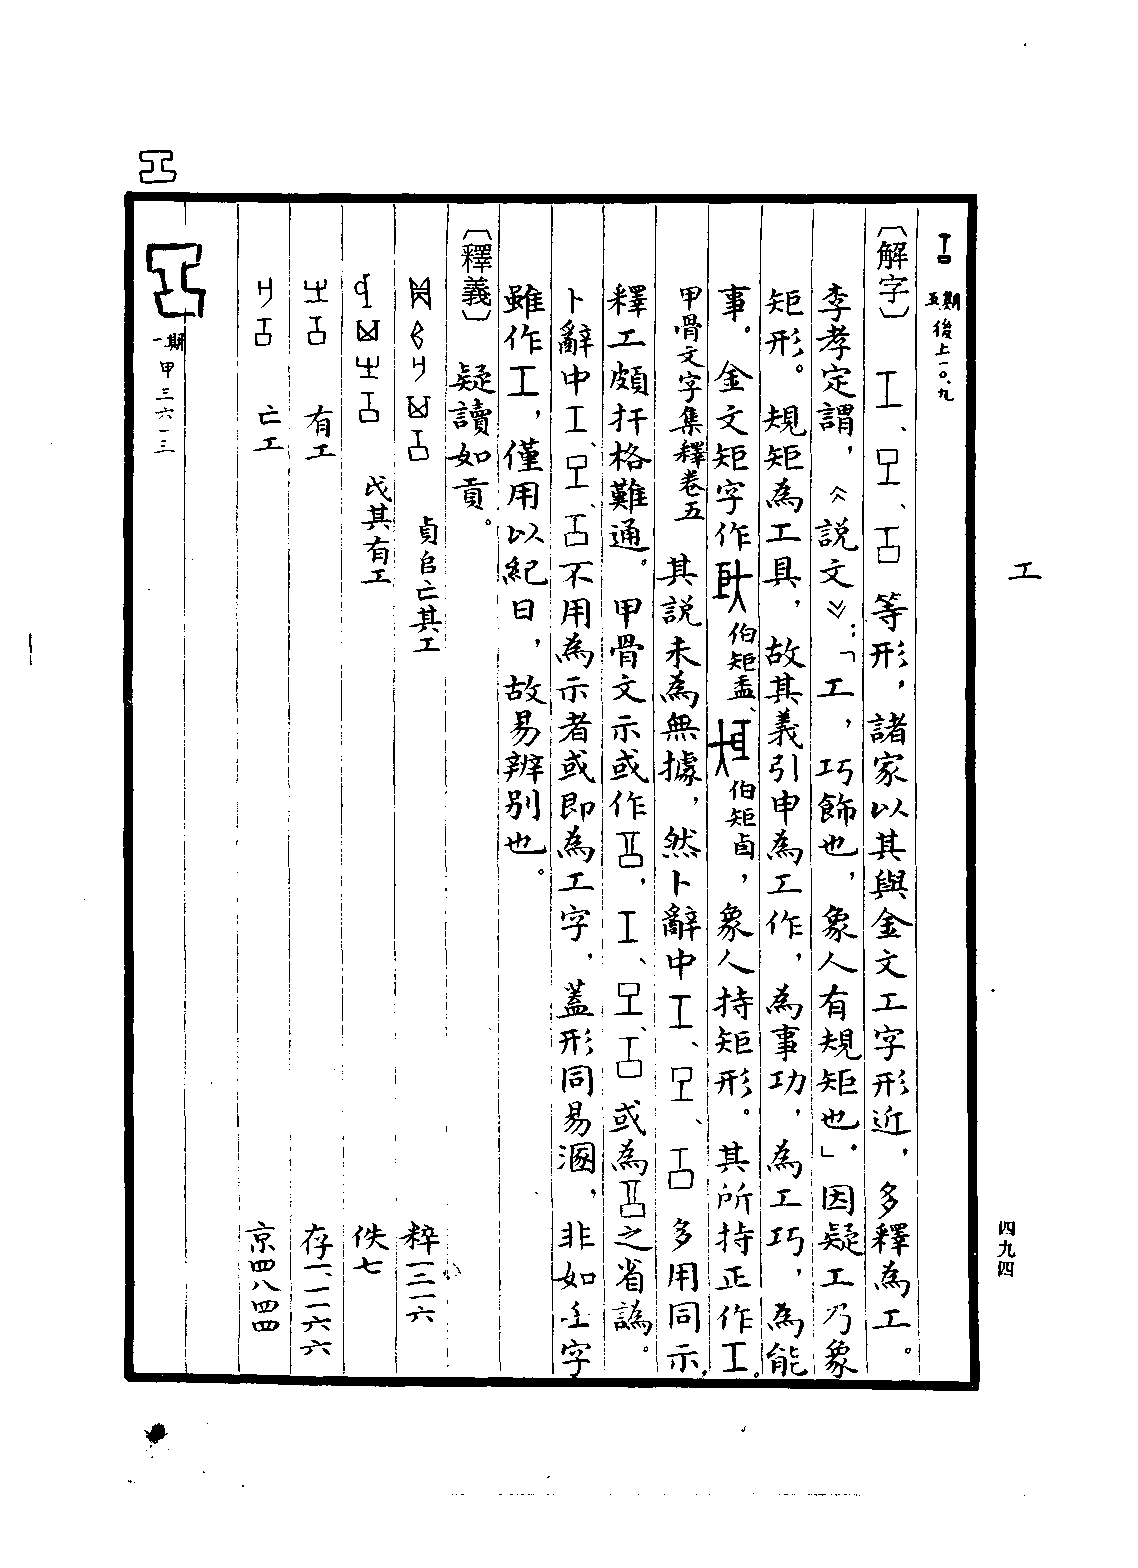 工
四九四
五期 後上一〇.九
〔解字〕 工、 、 等形，諸家以其與金文工字形近，多釋為工。
李孝定謂，《說文》：「工，巧飾也，象人有規矩也」。因疑工乃象
矩形。規矩為工具，故其義引申為工作，為事功，為工巧，為能
事。金文矩字作 伯矩盉、 伯矩卣，象人持矩形。其所持正作工。
甲骨文字集釋卷五 其說未為無據，然卜辭中工、 、 多用同示，
釋工頗扞格難通。甲骨文示或作 ，工、 、 或為 之省譌。
卜辭中工、 、 不用為示者或即為工字，蓋形同易溷，非如壬字
雖作工，僅用以紀日，故易辨別也。
〔釋義〕 疑讀如貢。
貞 亡其工 粹一二一六
戉其有工 佚七
有工 存一、一一六六
亡工 京四八四四
一期 甲三六一三